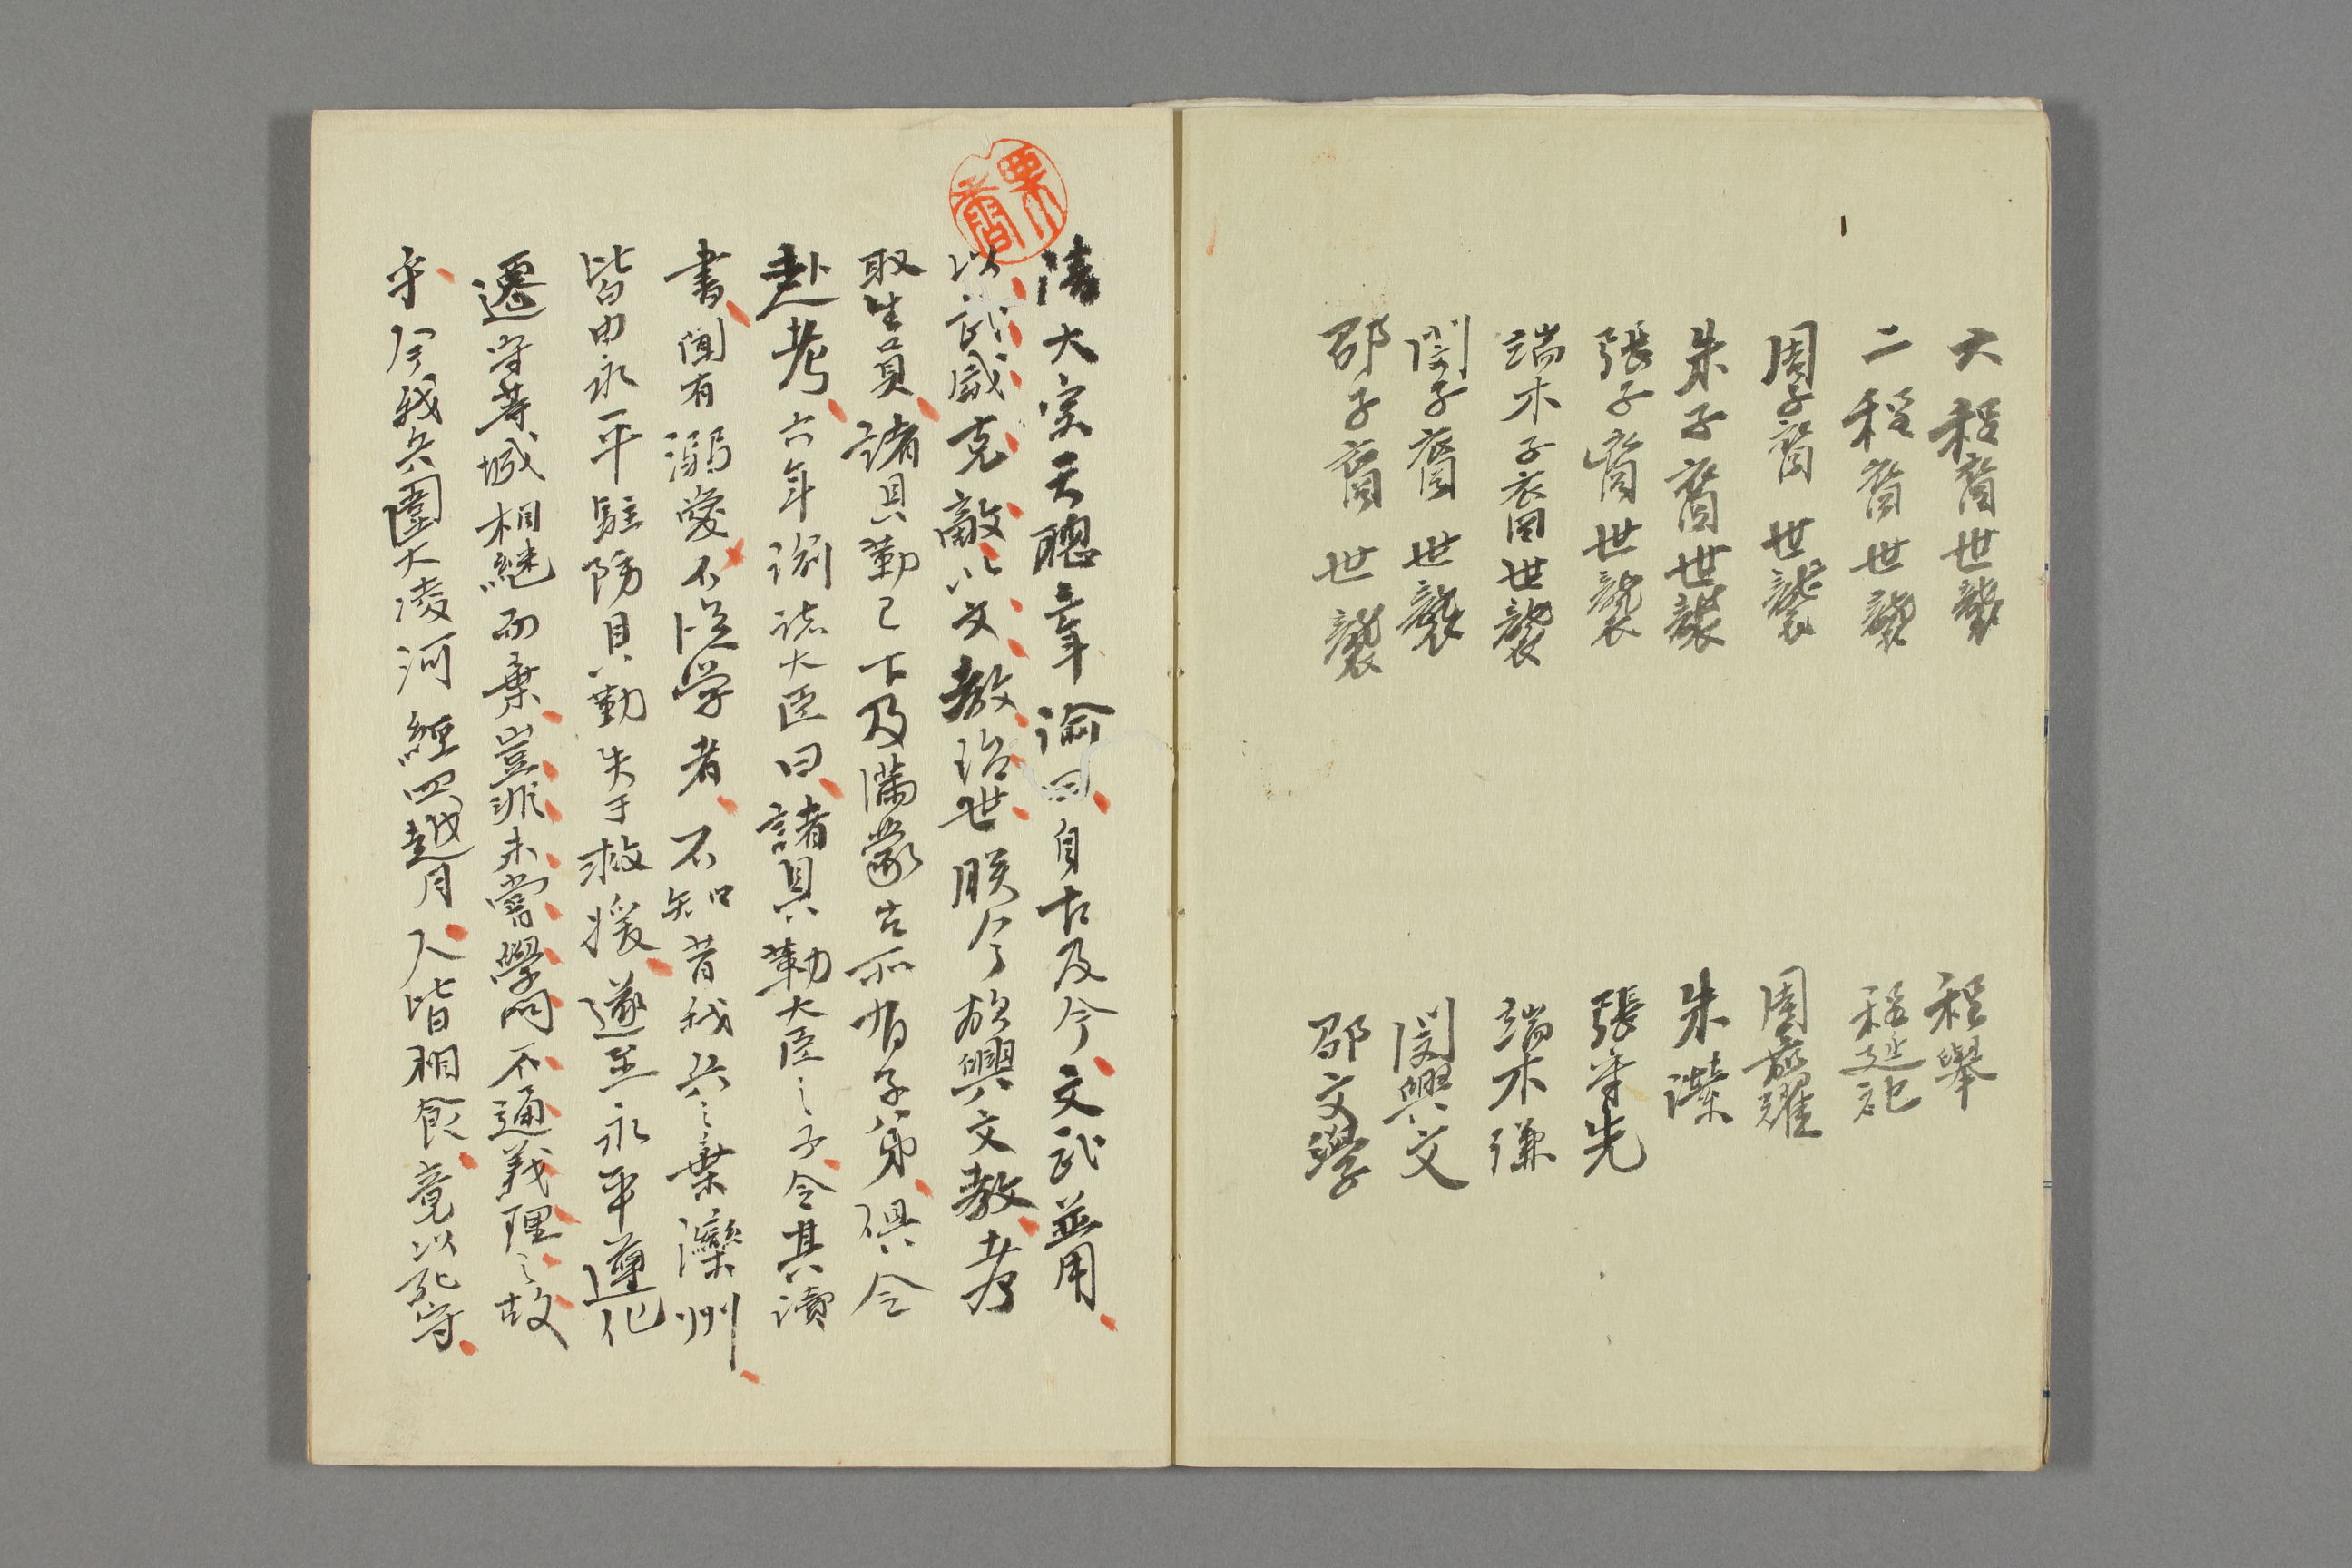 大程裔世襲 程舉
二程裔世襲 程延祀
周子裔世襲 周嘉耀
朱子裔世襲 朱瀠
張子裔世襲 張守先
端木子裔世襲 端木謙
閔子裔世襲 閔興文
邵子裔世襲 邵文學
清太宗天聰三年諭曰自古及今文武並用
以武威克敵以文教治世朕今欲興文教考
取生員諸貝勒已下及滿蒙古所有子弟俱令
赴考六年諭諸大臣曰諸貝勒大臣之子令其讀
書聞有溺愛不從学者不知昔我兵之棄灤州
皆由永平駐防貝勒失于救援遂至永平遵化
遷安等城相継而棄豈非未嘗學問不通義理之故
乎今我兵圍大凌河經四越月人皆相食竟以死守